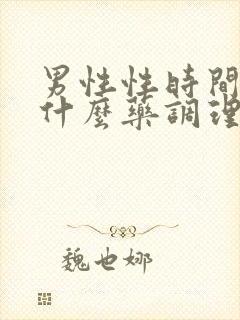 男性性時間
什麼藥調理
魏也娜